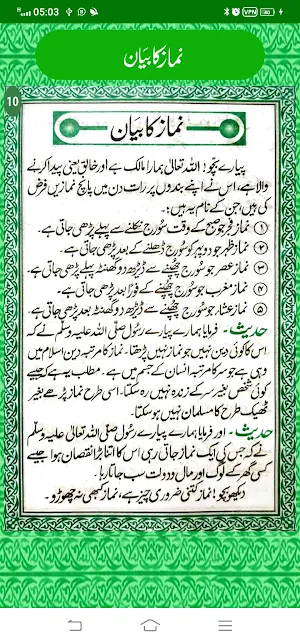 H 05:03 VPN 40
نماز کا بیان
10
نماز کا بیان
پیارے بچّو! اللہ تعالیٰ ہمارا مالک ہے اور خالق یعنی پیدا کرنے
والا ہے، اس نے اپنے بندوں پر رات دن میں پانچ نمازیں فرض
کی ہیں، جن کے نام یہ ہیں:۔
① نماز فجر جو صبح کے وقت سُورج نکلنے سے پہلے پڑھی جاتی ہے۔
② نماز ظہر جو دوپہر کو سُورج ڈھلنے کے بعد پڑھی جاتی ہے۔
③ نماز عصر جو سُورج چھپنے سے ڈیڑھ دو گھنٹہ پہلے پڑھی جاتی ہے۔
④ نماز مغرب جو سُورج چھپنے کے فوراً بعد پڑھی جاتی ہے۔
⑤ نماز عشاء جو سُورج چھپنے سے ڈیڑھ دو گھنٹہ بعد پڑھی جاتی ہے۔
حدیث۔ فرمایا ہمارے پیارے رسُول صلّی اللہ علیہ وسلّم نے کہ
اس کا کوئی دین نہیں جو نماز نہیں پڑھتا۔ نماز کا مرتبہ دین اسلام میں
وہی ہے جو سر کا مرتبہ انسان کے جسم میں ہے۔ مطلب یہ ہے کہ جیسے
کوئی شخص بغیر سر کے زندہ نہیں رہ سکتا۔ اسی طرح نماز پڑھے بغیر
ٹھیک طرح کا مسلمان نہیں ہو سکتا۔
حدیث۔ اور فرمایا ہمارے پیارے رسُول صلّی اللہ تعالیٰ علیہ وسلّم
نے کہ جس کی ایک نماز جاتی رہی اس کا اتنا بڑا نقصان ہوا جیسے
کسی گھر کے لوگ اور مال و دولت سب جاتا رہا۔
دیکھو بچّو! نماز کتنی ضروری چیز ہے، نماز کبھی نہ چھوڑو۔